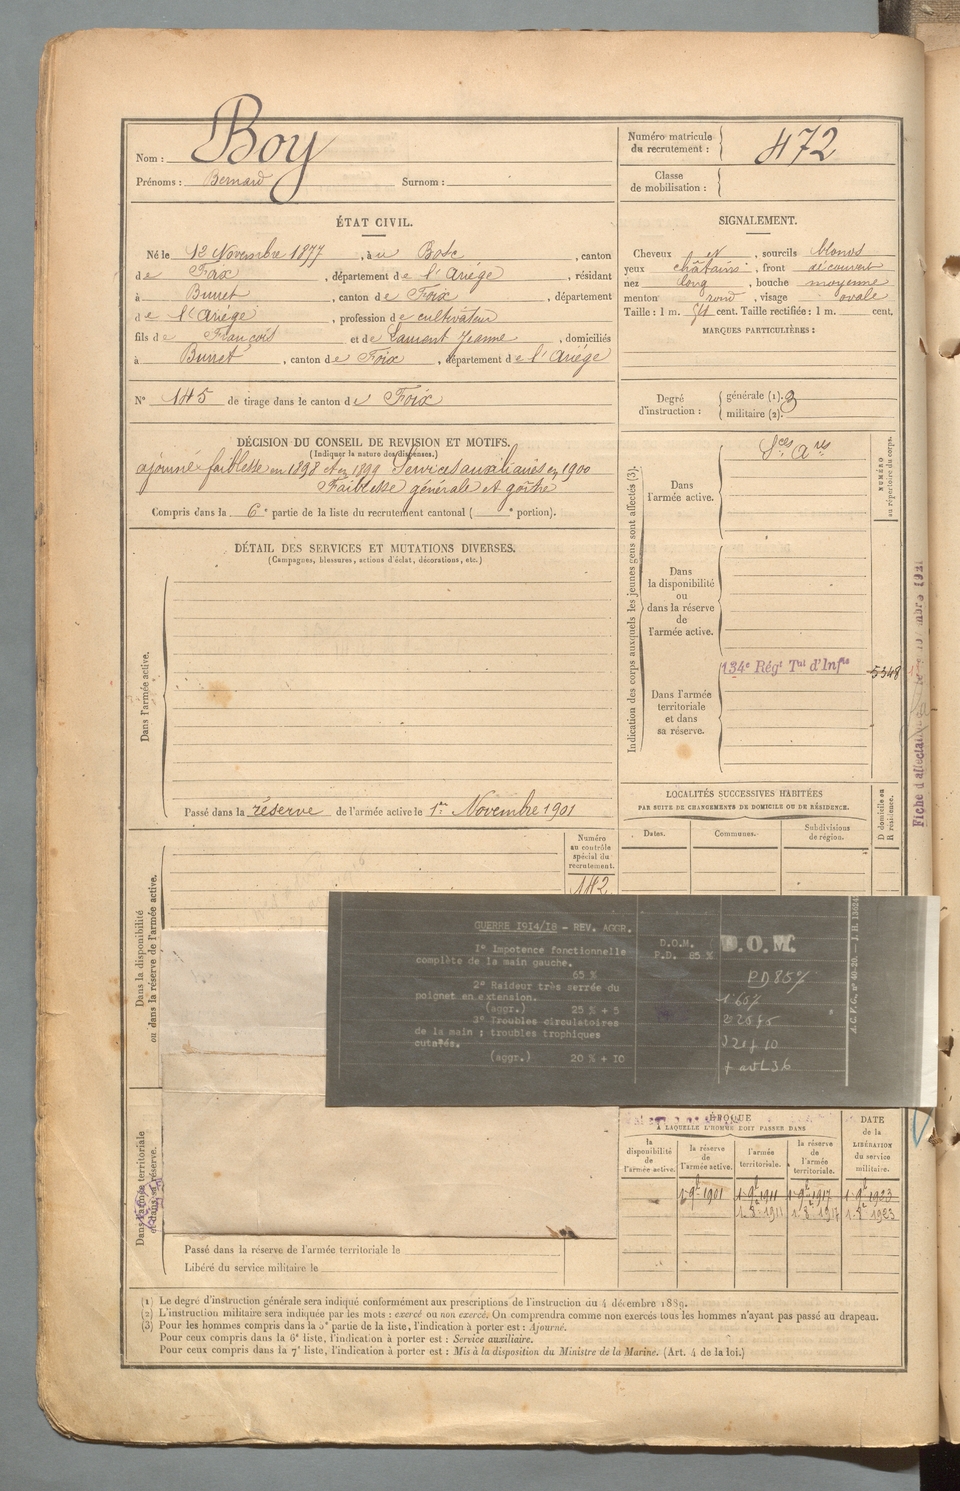 Nom : Boy
Prénoms : Bernard Surnom :
Numéro matricule
du recrutement : 472
Classe
de mobilisation :
ÉTAT CIVIL.
Né le 12 Novembre 1877, à u Bosc, canton
de Foix, département de l'Ariège, résidant
à Burret, canton de Foix, département
de l'Ariège, profession de cultivateur
fils de François et de Laurent Jeanne, domiciliés
à Burret, canton de Foix, département de l'Ariège
SIGNALEMENT.
Cheveux et, sourcils blonds
yeux châtains, front découvert
nez long, bouche moyenne
menton rond, visage ovale
Taille : 1 m. cent. Taille rectifiée : 1 m. cent.
MARQUES PARTICULIÈRES :
N° 145 de tirage dans le canton de Foix
Degré
d'instruction :
générale (1). 3
militaire (2).
DÉCISION DU CONSEIL DE REVISION ET MOTIFS.
(Indiquer la nature des dispenses.)
ajourné faiblesse en 1898 et en 1899 Services auxiliaires en 1900
Faiblesse générale et goître
Compris dans la 6e partie de la liste du recrutement cantonal ( e portion).
DÉTAIL DES SERVICES ET MUTATIONS DIVERSES.
(Campagnes, blessures, actions d'éclat, décorations, etc.)
Dans l'armée active.
Passé dans la réserve de l'armée active le 1er Novembre 1901
Indication des corps auxquels les jeunes gens sont affectés (3).
NUMÉRO
au répertoire du corps.
Dans
l'armée active.
Sces Ares
Dans
la disponibilité
ou
dans la réserve
de
l'armée active.
134e Régt Tal d'Infie
5348
Dans l'armée
territoriale
et dans
sa réserve.
LOCALITÉS SUCCESSIVES HABITÉES
PAR SUITE DE CHANGEMENTS DE DOMICILE OU DE RÉSIDENCE.
Dates.
Communes.
Subdivisions
de région.
D domicile ou
R résidence.
Numéro
au contrôle
spécial du
recrutement.
Dans la disponibilité
ou dans la réserve de l'armée active.
GUERRE 1914/18 - REV. AGGR.
1° Impotence fonctionnelle
complète de la main gauche.
65 %
2° Raideur très serrée du
poignet en extension.
(aggr.) 25 % + 5
3° Troubles circulatoires
de la main ; troubles trophiques
cutanés.
(aggr.) 20 % + 10
D.O.M.
P.D. 85 %
D.O.M.
PD 85%
1 65%
2 25 + 5
3 20 + 10
Dans l'armée territoriale
et dans sa réserve.
ÉPOQUE
A LAQUELLE L'HOMME DOIT PASSER DANS
la
disponibilité
de
l'armée active.
la réserve
de
l'armée active.
l'armée
territoriale.
la réserve
de
l'armée
territoriale.
DATE
de la
LIBÉRATION
du service
militaire.
1 9e 1901 1 9e 1911 1 9e 1917 1 9e 1923
1 8e 1911 1 8e 1917 1 8e 1923
Passé dans la réserve de l'armée territoriale le
Libéré du service militaire le
(1) Le degré d'instruction générale sera indiqué conformément aux prescriptions de l'instruction du 4 décembre 1889.
(2) L'instruction militaire sera indiquée par les mots : exercé ou non exercé. On comprendra comme non exercés tous les hommes n'ayant pas passé au drapeau.
(3) Pour les hommes compris dans la 5e partie de la liste, l'indication à porter est : Ajourné.
Pour ceux compris dans la 6e liste, l'indication à porter est : Service auxiliaire.
Pour ceux compris dans la 7e liste, l'indication à porter est : Mis à la disposition du Ministre de la Marine. (Art. 4 de la loi.)